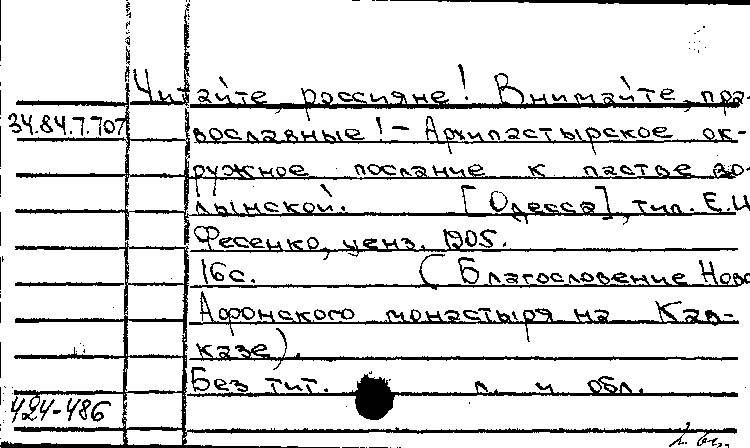 Читайте, россияне! Внимайте, пра-
34.84.7.707 вославные! - Архипастырское ок-
ружное послание к пастве во-
лынской. [Одесса], тип. Е.И.
Фесенко, ценз. 1905.
16с. (Благословение Ново-
Афонского монастыря на Кав-
казе).
Без тит. л. и обл.
424-486